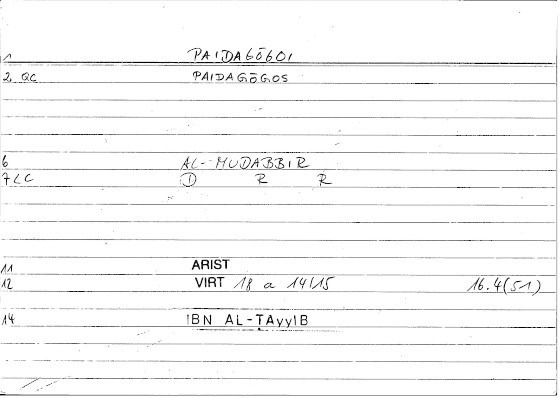 1 PAIDAGŌGOI
2, QC PAIDAGŌGOS
6 AL-MUDABBIR
7 LC D R R
11 ARIST
12 VIRT 18 a 14/15 16.4(51)
14 IBN AL-ṬAyyIB